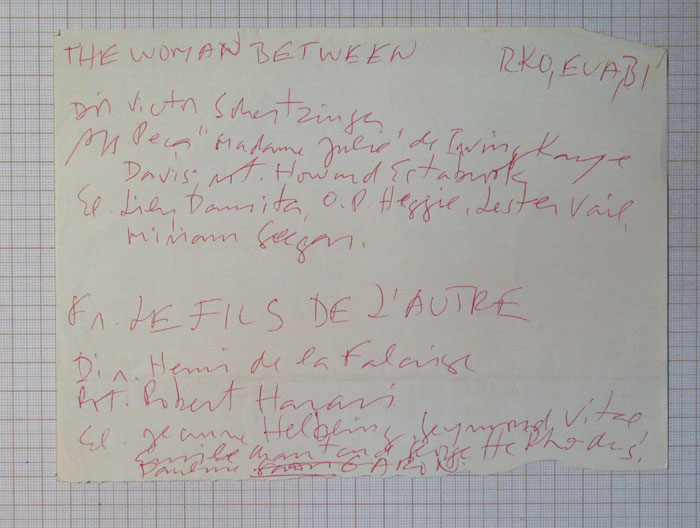 THE WOMAN BETWEEN RKO, EUA, 31
Dir. Victor Schertzinger
Arg. Peça "Madame Julie" de Irving Kaye
Davis; rot. Howard Estabrook
El. Lily Damita, O.P. Heggie, Lester Vail,
Miriam Seegar.
Fr. LE FILS DE L'AUTRE
Dir. Henri de la Falaise
Rot. Robert Harari
El. Jeanne Helbling, Geymond Vital,
Emile Chautard, Georgette Rhodes,
Pauline GARON.